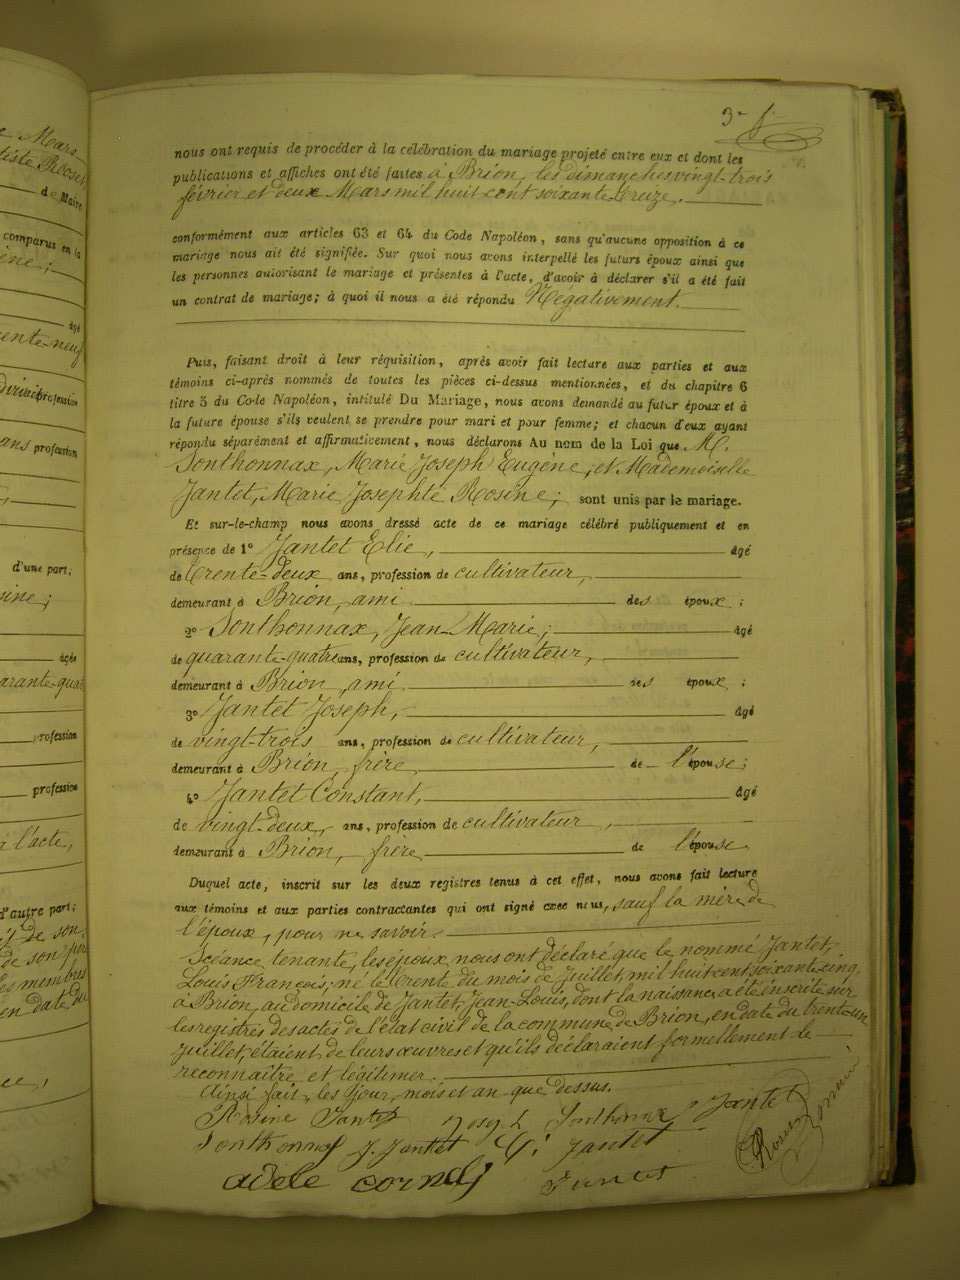 e Mars
tiste Roset
de Maire
comparus en la
ine;
âgé
ente-neuf
profession
ans profession
d'une part;
sine;
âgés
arante-quat
profession
profession
à l'acte,
d'autre part;
de son
de son
les membres
en date du
3e
nous ont requis de procéder à la célébration du mariage projeté entre eux et dont les
publications et affiches ont été faites à Brion, les dimanches vingt-trois
février et deux Mars mil huit cent soixante-treize.
conformément aux articles 63 et 64 du Code Napoléon, sans qu'aucune opposition à ce
mariage nous ait été signifiée. Sur quoi nous avons interpellé les futurs époux ainsi que
les personnes autorisant le mariage et présentes à l'acte, d'avoir à déclarer s'il a été fait
un contrat de mariage; à quoi il nous a été répondu Négativement.
Puis, faisant droit à leur réquisition, après avoir fait lecture aux parties et aux
témoins ci-après nommés de toutes les pièces ci-dessus mentionnées, et du chapitre 6
titre 5 du Code Napoléon, intitulé Du Mariage, nous avons demandé au futur époux et à
la future épouse s'ils veulent se prendre pour mari et pour femme; et chacun d'eux ayant
répondu séparément et affirmativement, nous déclarons Au nom de la Loi que M.
Sonthonnax, Marie Joseph Eugène, et Mademoiselle
Jantet, Marie Josephte Rosine; sont unis par le mariage.
Et sur-le-champ nous avons dressé acte de ce mariage célébré publiquement et en
présence de 1o Jantet Elie, âgé
de trente-deux ans, profession de cultivateur,
demeurant à Brion, ami des époux;
2o Sonthonnax, Jean-Marie; âgé
de quarante-quatre ans, profession de cultivateur,
demeurant à Brion, ami des époux;
3o Jantet Joseph, âgé
de vingt-trois ans, profession de cultivateur,
demeurant à Brion, frère de l'épouse;
4o Jantet Constant, âgé
de vingt-deux, ans, profession de cultivateur,
demeurant à Brion, frère de l'épouse.
Duquel acte, inscrit sur les deux registres tenus à cet effet, nous avons fait lecture
aux témoins et aux parties contractantes qui ont signé avec nous, sauf la mère de
l'époux, pour ne savoir.
Séance tenante, les époux nous ont déclaré que le nommé Jantet,
Louis François, né le trente du mois de Juillet, mil huit cent soixante-cinq,
à Brion, au domicile de Jantet, Jean-Louis, dont la naissance a été inscrite sur
les registres des actes de l'état civil de la commune de Brion, en date du trente-un
juillet, étaient de leurs œuvres et qu'ils déclaraient formellement le
reconnaître et légitimer.
Ainsi fait, les jour, mois et an que dessus.
Rosine Jantet Joseph Sonthonnax Jantet
Sonthonnax J. Jantet C. Jantet
adele cornely